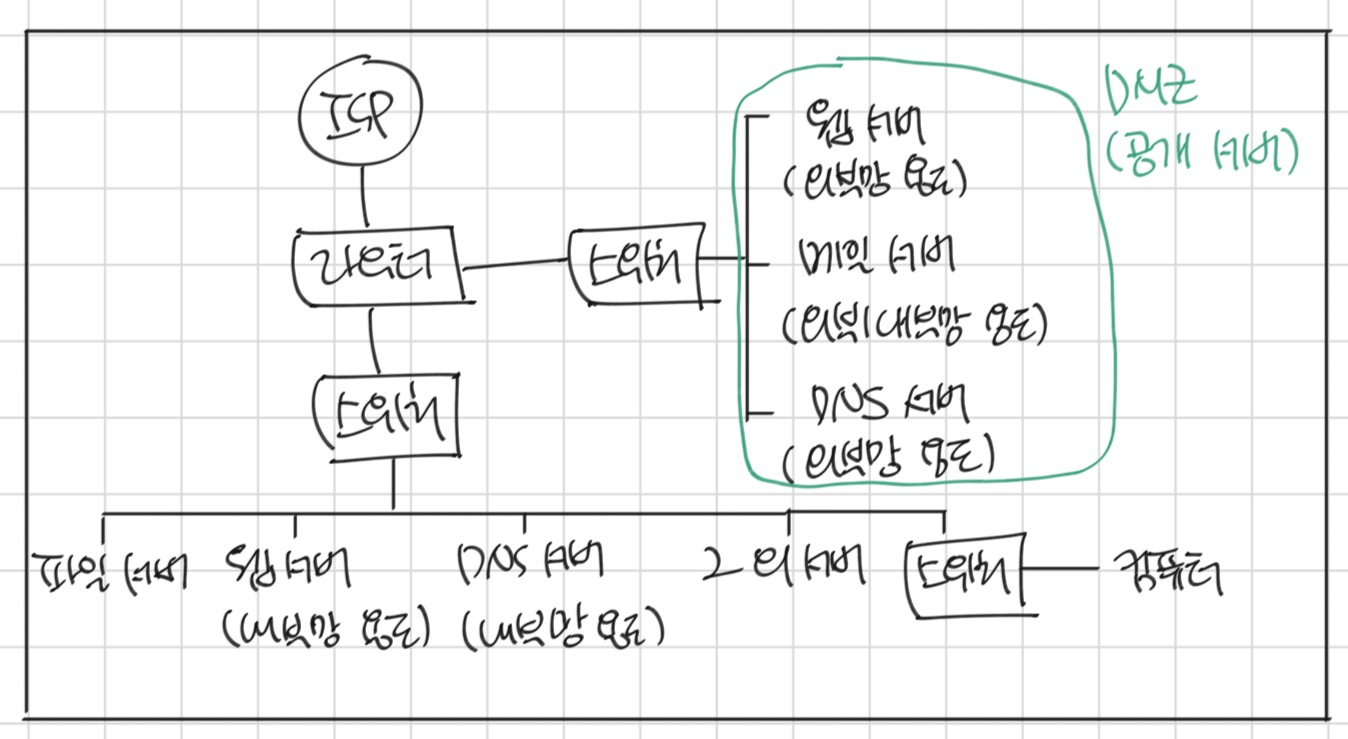 ISP
라우터
스위치
스위치
웹 서버
(외부망 용도)
메일 서버
(외부/내부망 용도)
DNS 서버
(외부망 용도)
DMZ
(공개 서버)
파일 서버
웹 서버
(내부망 용도)
DNS 서버
(내부망 용도)
그 외 서버
스위치
컴퓨터